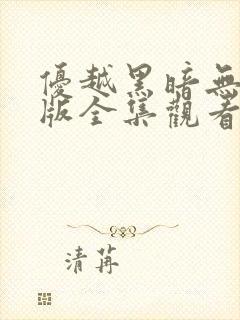 優越黑暗無
版全集觀看
清苒